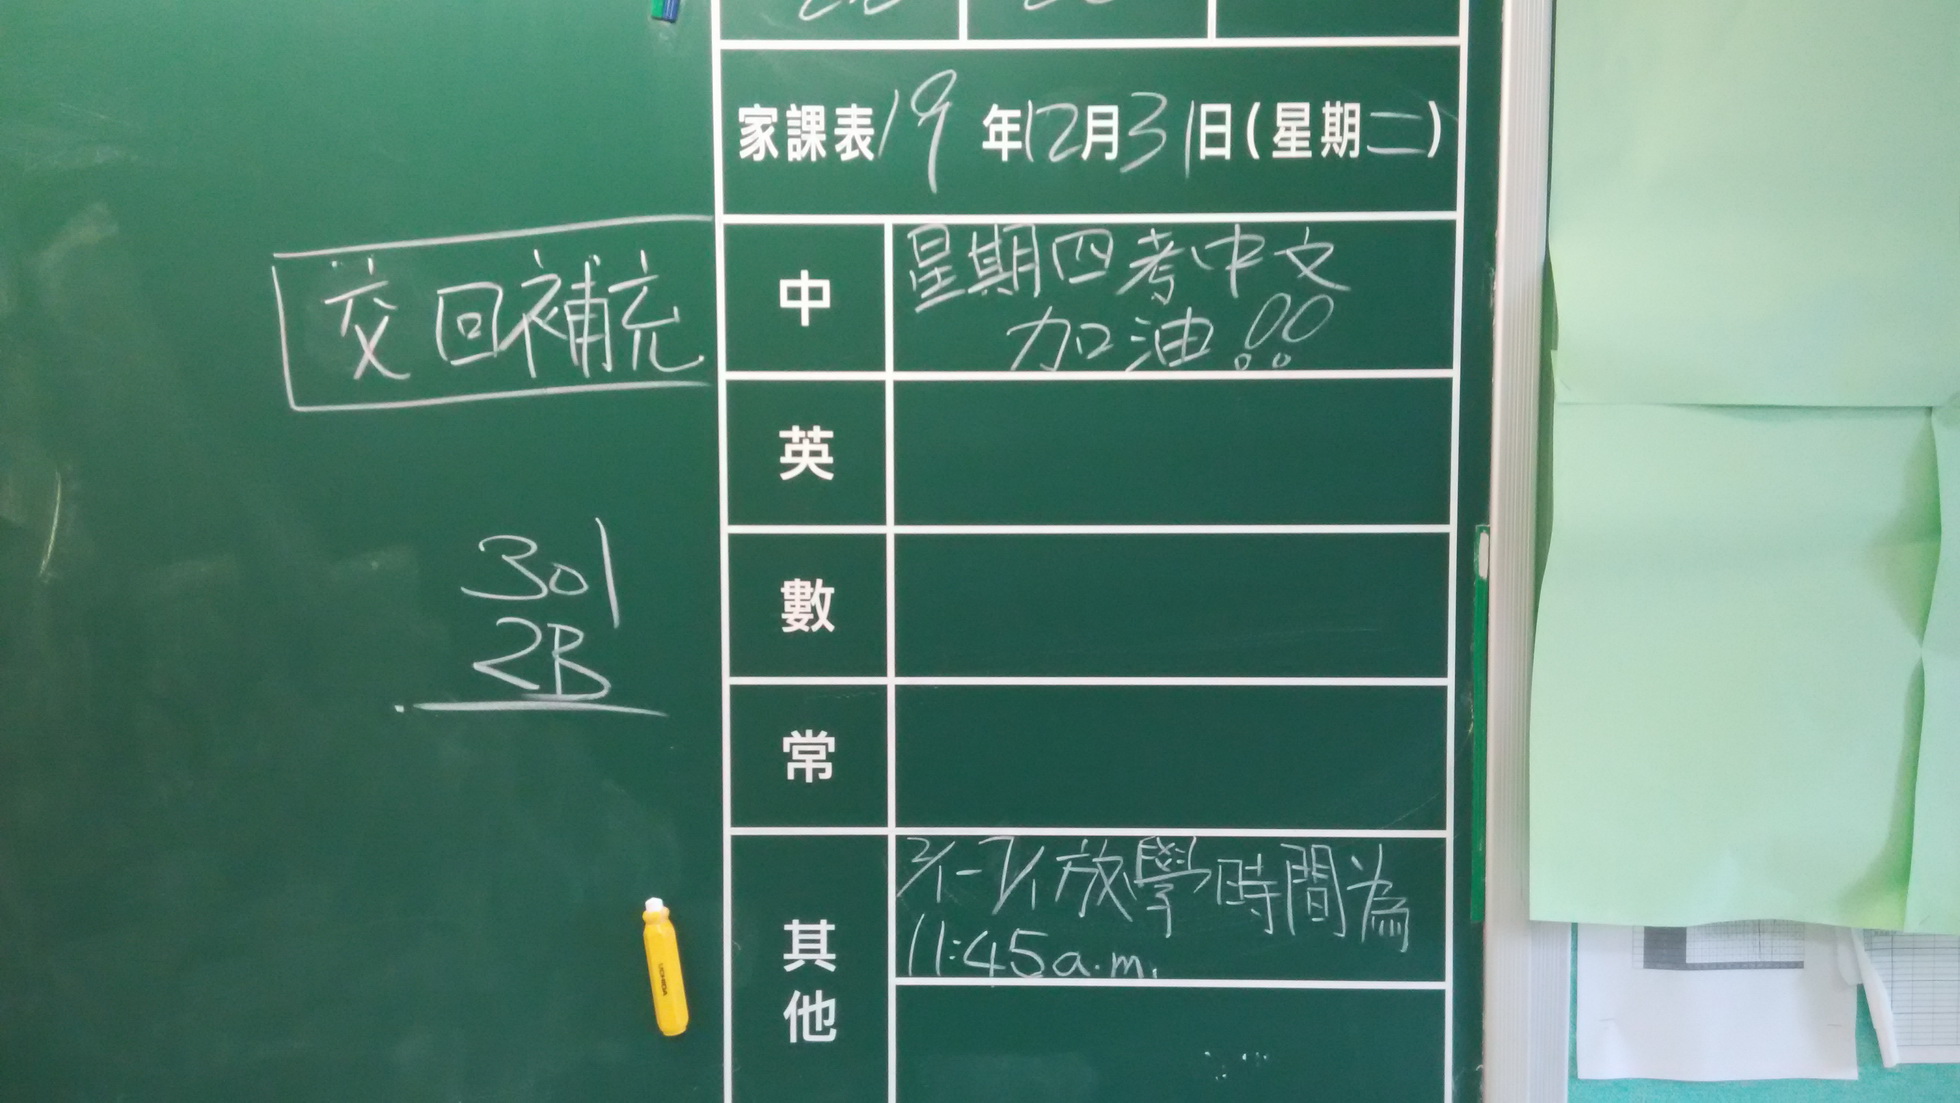 家課表19年12月31日(星期二)
交回補充
中 星期四考中文
加油!!
英
301
2B
數
常
2/1-7/1放學時間為
11:45a.m.
其他
UCHIDA